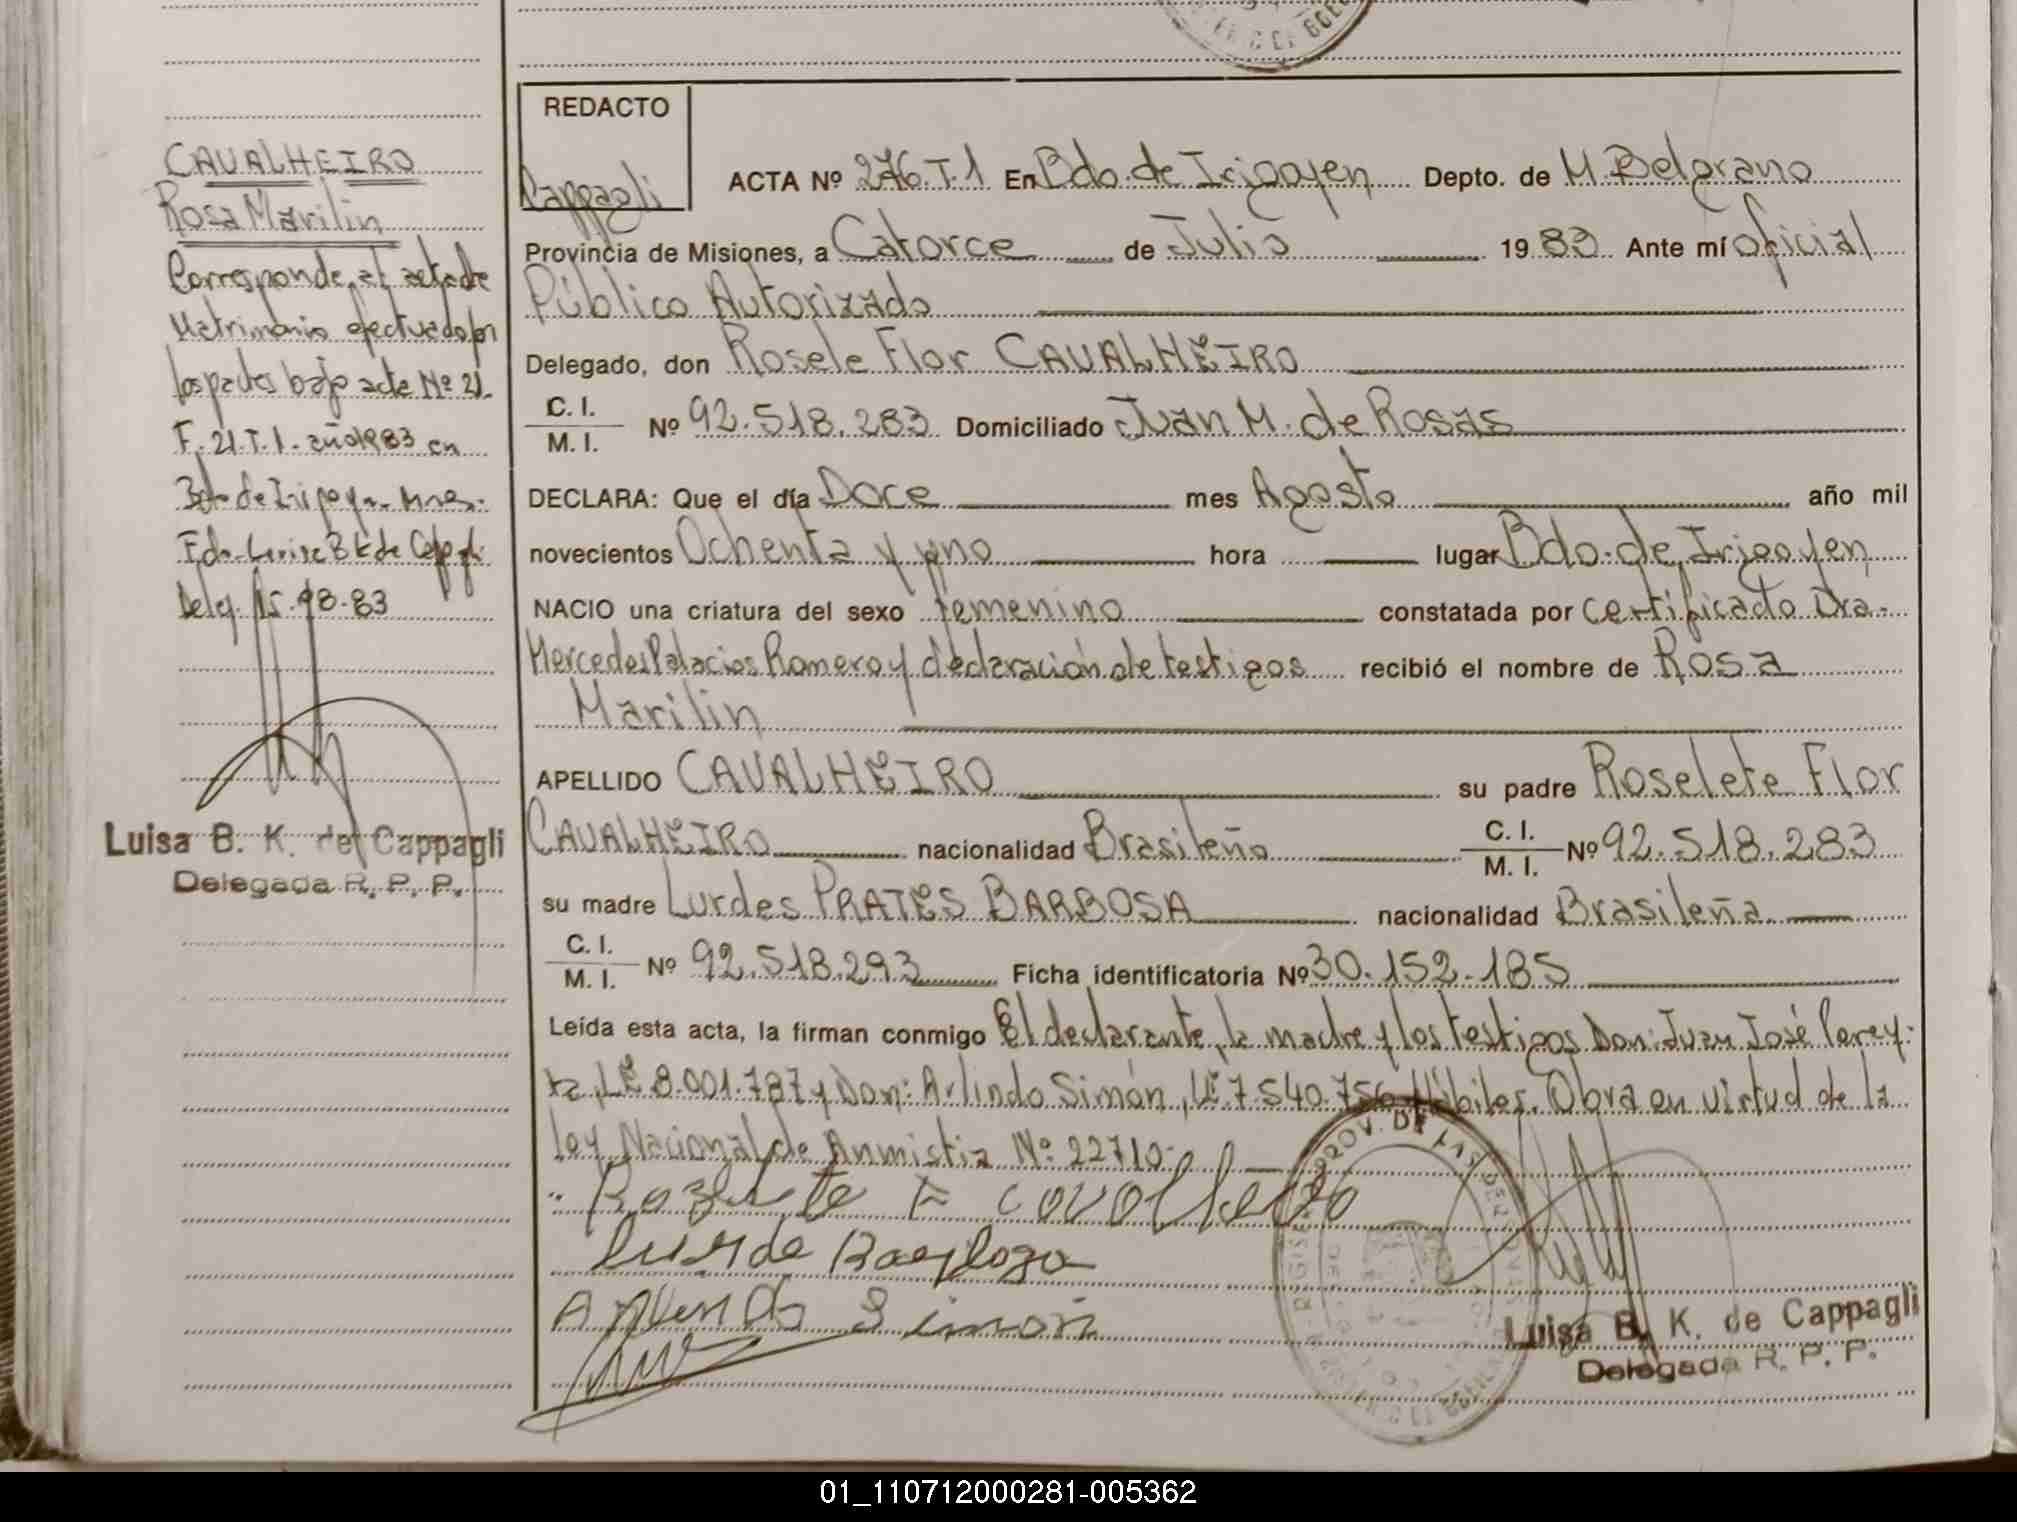 CAVALHEIRO
Rosa Marilin
Corresponde al acta de
Matrimonio efectuado por
los padres bajo acta Nº 21.
F. 21. T. 1. año 1983 en
Bdo de Irigoyen Mnes.
Fdo. Luisa B K de Cappagli
Deleg. 15.
Luisa B. K. de Cappagli
Delegada R. P. P.
REDACTO
Cappagli
ACTA Nº 276. T. 1 En Bdo. de Irigoyen Depto. de M. Belgrano
Provincia de Misiones, a Catorce de Julio 1983 Ante mí oficial
Público Autorizado
Delegado, don Rosele Flor CAVALHEIRO
C. I.
M. I. Nº 92.518.283 Domiciliado Juan M. de Rosas
DECLARA: Que el día Doce mes Agosto año mil
novecientos Ochenta y uno hora lugar Bdo. de Irigoyen
NACIO una criatura del sexo femenino constatada por certificado Dra.
Mercedes Palacios Romero y declaración de testigos recibió el nombre de Rosa
Marilin
APELLIDO CAVALHEIRO su padre Roselete Flor
CAVALHEIRO nacionalidad Brasileño C. I. M. I. Nº 92.518.283
su madre Lurdes PRATES BARBOSA nacionalidad Brasileña
C. I.
M. I. Nº 92.518.293 Ficha identificatoria Nº 30.152.185
Leída esta acta, la firman conmigo El declarante, la madre y los testigos Don: Juan José Perey-
ra, LE 8.001.787 y Don: Arlindo Simón, LE 7.540.756 Hábiles. Obra en virtud de la
ley Nacional de Anmistia Nº 22710.
F
Simon
PROV. DE LAS
Luisa B. K. de Cappagli
Delegada R. P. P.
01_110712000281-005362